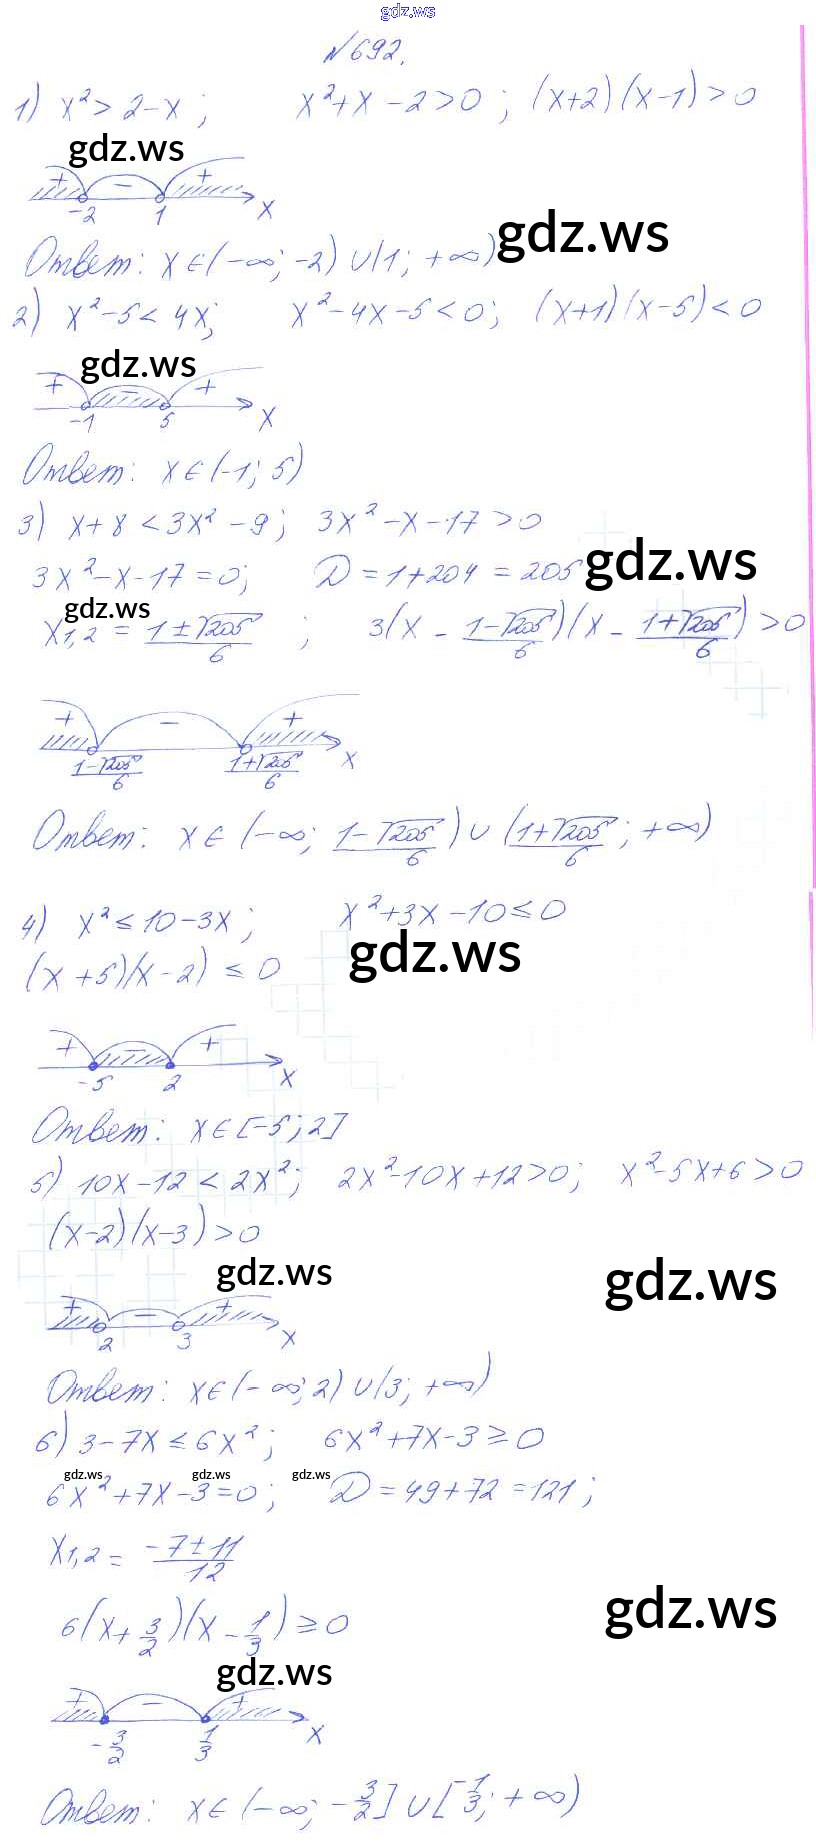 gdz.ws
№692.
1) x² > 2-x ; x²+x-2>0 ; (x+2)(x-1)>0
gdz.ws
+ - +
-2 1 x
gdz.ws
Ответ: x∈(-∞; -2)∪(1; +∞)
2) x²-5<4x; x²-4x-5<0; (x+1)(x-5)<0
gdz.ws
+ - +
-1 5 x
Ответ: x∈(-1; 5)
3) x+8<3x²-9; 3x²-x-17>0
3x²-x-17=0; D=1+204=205
gdz.ws
gdz.ws
x1,2 = (1±√205)/6 ; 3(x - (1-√205)/6)(x - (1+√205)/6)>0
+ - +
(1-√205)/6 (1+√205)/6 x
Ответ: x∈(-∞; (1-√205)/6)∪((1+√205)/6; +∞)
4) x²≤10-3x; x²+3x-10≤0
gdz.ws
(x+5)(x-2)≤0
+ - +
-5 2 x
Ответ: x∈[-5; 2]
5) 10x-12<2x²; 2x²-10x+12>0; x²-5x+6>0
(x-2)(x-3)>0
gdz.ws gdz.ws
+ - +
2 3 x
Ответ: x∈(-∞; 2)∪(3; +∞)
6) 3-7x≤6x²; 6x²+7x-3≥0
gdz.ws gdz.ws gdz.ws
6x²+7x-3=0; D=49+72=121;
x1,2 = (-7±11)/12
gdz.ws
6(x+3/2)(x-1/3)≥0
gdz.ws
+ - +
-3/2 1/3 x
Ответ: x∈(-∞; -3/2]∪[1/3; +∞)